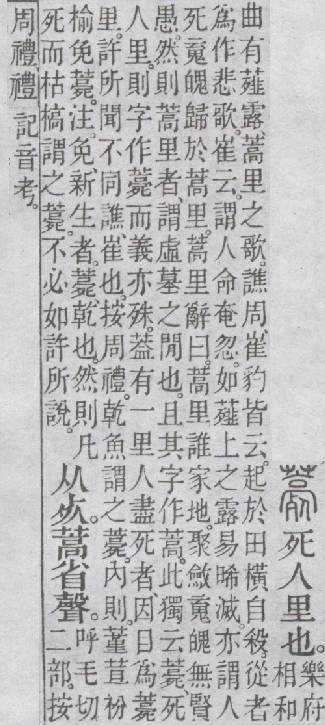 薧死人里也。樂府
相和
曲有薤露蒿里之歌。譙周、崔豹皆云。起於田橫自殺。從者
爲作悲歌。崔云。謂人命奄忽。如薤上之露易晞滅。亦謂人
死䰟魄歸於蒿里。蒿里辭曰。蒿里誰家地。聚斂䰟魄無賢
愚。然則蒿里者、謂虛墓之閒也。且其字作蒿。此獨云薧、死
人里。則字作薧而義亦殊。葢有一里人盡死者、因目爲薧
里。許所聞不同譙、崔也。按周禮。乾魚謂之薧。內則。堇荁枌
榆免薧。注。免、新生者。薧、乾也。然則凡
死而枯槁謂之薧。不必如許所說。
从死。蒿省聲。呼毛切
二部。按
周禮禮記音考。